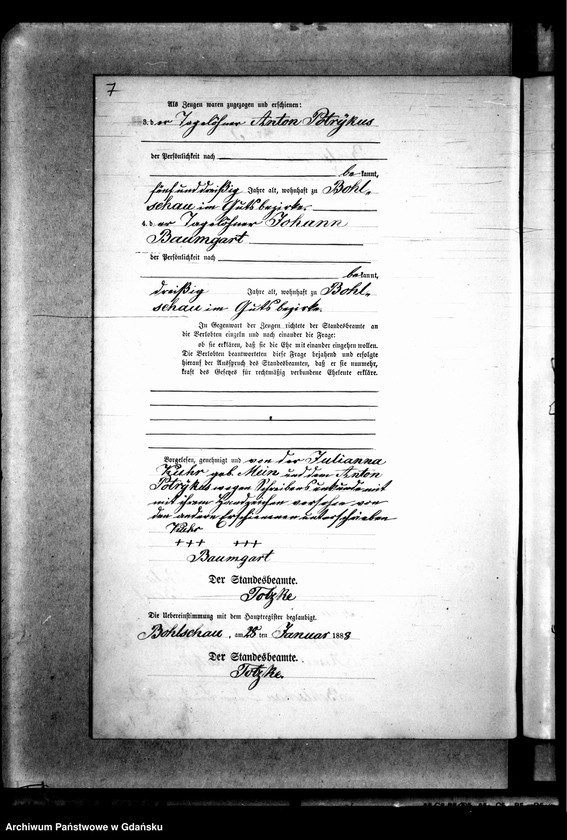 7
Als Zeugen waren zugezogen und erschienen:
3. der Tagelöhner Anton Potrÿkus
der Persönlichkeit nach
bekannt,
fünfunddreißig Jahre alt, wohnhaft zu Bohl-
schau im Gutsbezirke.
4. der Tagelöhner Johann
Baumgart
der Persönlichkeit nach
bekannt,
dreißig Jahre alt, wohnhaft zu Bohl-
schau im Gutsbezirke.
In Gegenwart der Zeugen richtete der Standesbeamte an
die Verlobten einzeln und nach einander die Frage:
ob sie erklären, daß sie die Ehe mit einander eingehen wollen.
Die Verlobten beantworteten diese Frage bejahend und erfolgte
hierauf der Ausspruch des Standesbeamten, daß er sie nunmehr,
kraft des Gesetzes für rechtmäßig verbundene Eheleute erkläre.
Vorgelesen, genehmigt und von der Julianna
Kuhr geb. Mein und dem Anton
Potrÿkus wegen Schreibensunkunde mit
mit ihrem Handzeichen versehen von
den andern Erschienenen unterschrieben
Kuhr
+++ +++
Baumgart
Der Standesbeamte.
Totzke
Die Uebereinstimmung mit dem Hauptregister beglaubigt.
Bohlschau, am 28 ten Januar 1888
Der Standesbeamte.
Totzke.
Archiwum Państwowe w Gdańsku